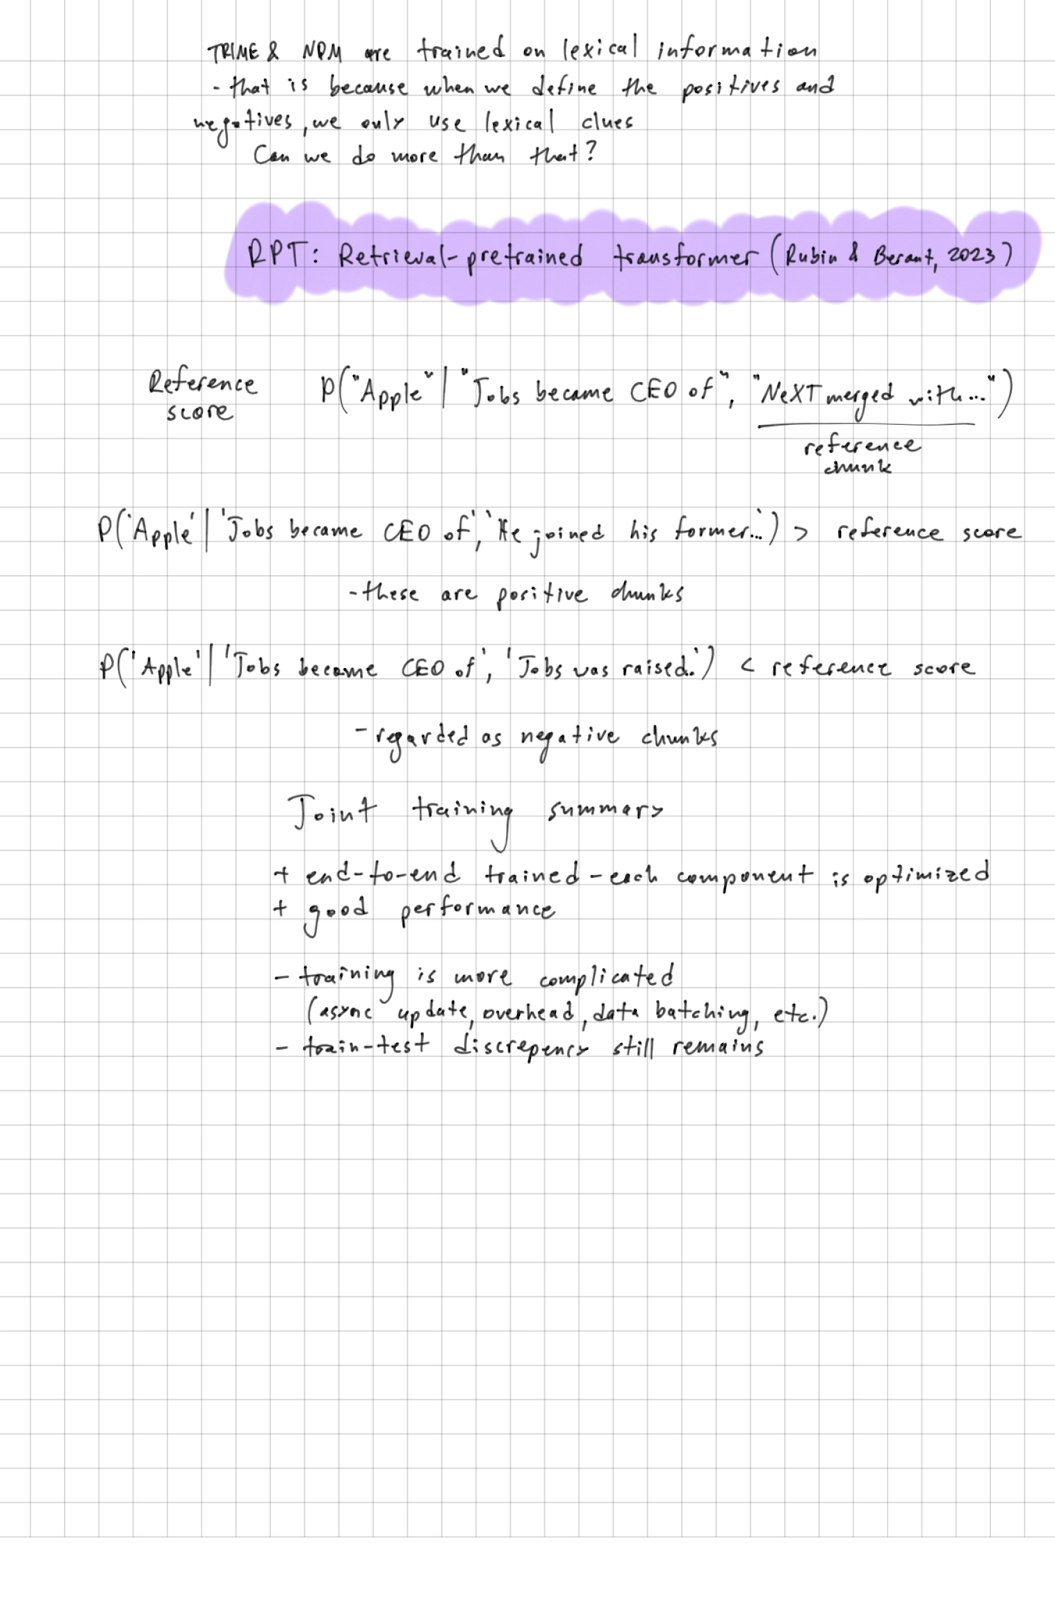 TRIME & NPM are trained on lexical information
- that is because when we define the positives and
negatives, we only use lexical clues
Can we do more than that?
RPT: Retrieval-pretrained transformer (Rubin & Berant, 2023)
Reference score P("Apple" | "Jobs became CEO of", "NeXT merged with...")
reference
chunk
P('Apple' | 'Jobs became CEO of', 'He joined his former...') > reference score
- these are positive chunks
P('Apple' | 'Jobs became CEO of', 'Jobs was raised..') < reference score
- regarded as negative chunks
Joint training summary
+ end-to-end trained - each component is optimized
+ good performance
- training is more complicated
(async update, overhead, data batching, etc.)
- train-test discrepency still remains